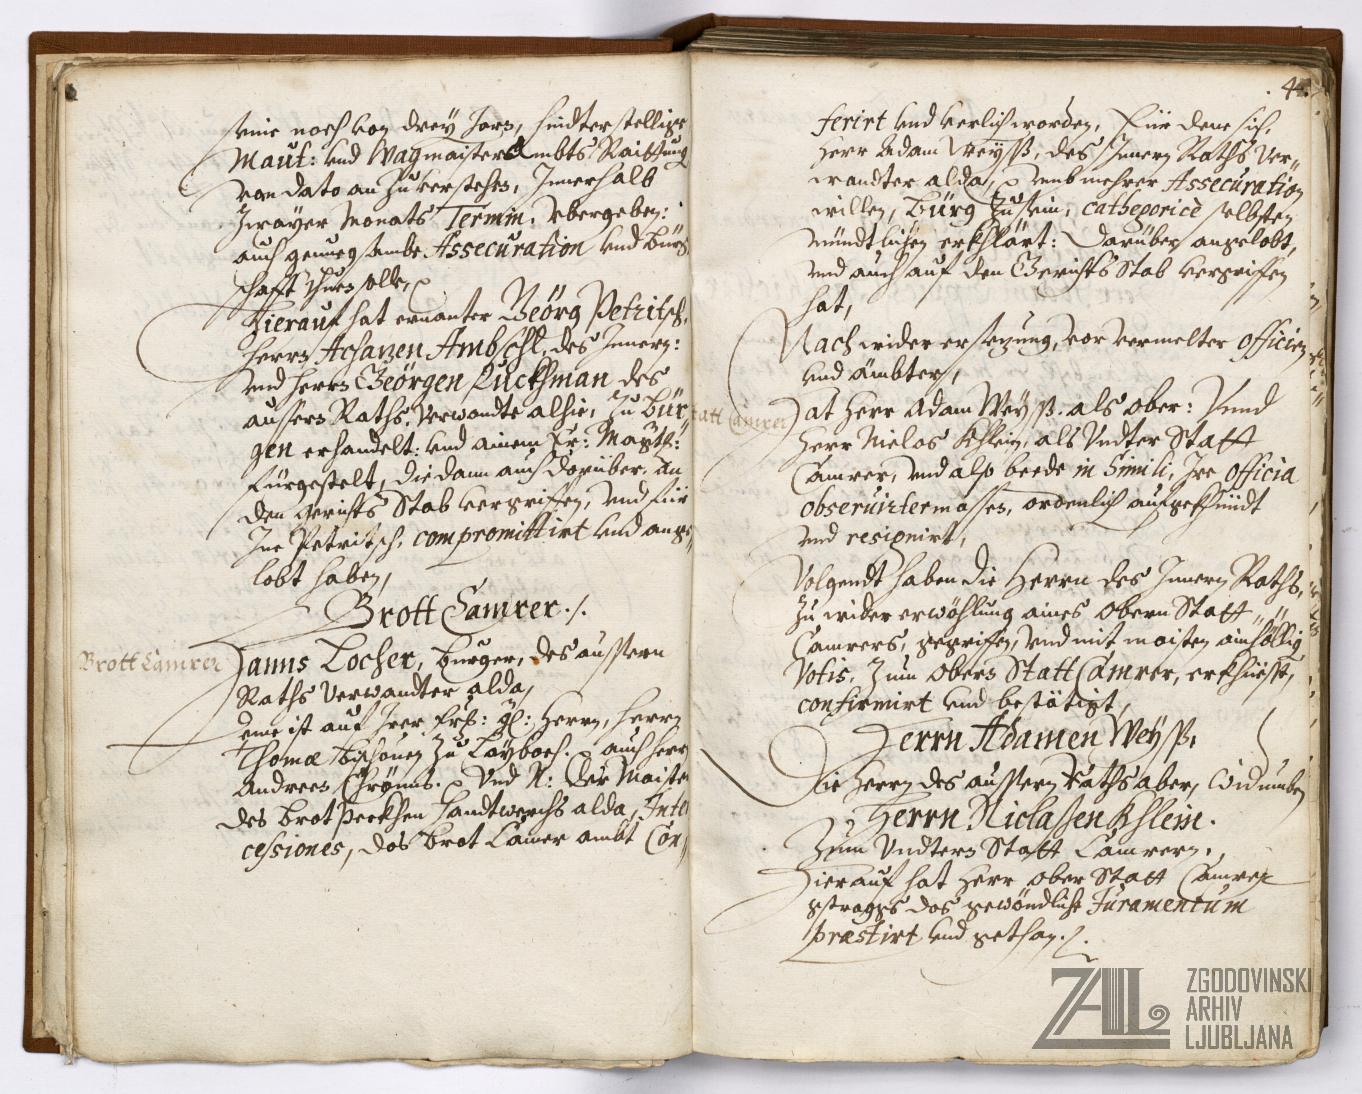 seine noch von drey Jarn, hindterstellige
Maut: und Wagmaister Ambts Raittung
von dato an Zuverstehen, Innerhalb
Zwayer Monats Termin, ubergeben:
auch genuegsambe Assecuration und Bürg
schafft thuen solle,
Hierauf hat ernanter Geörg Petritsch,
Herrn Achazen Ambschl, des Innern:
und Herrn Geörgen Luckhman des
aussern Raths Verwandte alhie, Zu Bür
gen erhandelt: und ainem Er: Magist:
fürgestelt, die dann auch darüber, an
den gerichts Stab vergriffen, und für
Ine Petritsch, compromittirt und ange
lobt haben,
Brott Camrer ./.
Brott Camrer
Hanns Locher, burger, des aussern
Raths Verwandter alda,
deme ist auf Irer gl: Herrn, Herrn
Thomæ zu Laybach. auch Herrn
Andreen Chrönns. Und N: der Maister
des Brotpeckhen Handtwerchs alda, Inter
cessiones, das Brot Camer ambt Con„
44.
ferirt und verlich worden, Für dene sich,
Herr Adam Weyss, des Innern Raths Ver„
wandter alda, umb mehrer Assecuration
willen, Bürg zu sein, cathegoricè selbsten
mündtlichen erkhlärt: darüber angelobt,
und auch auf den Gerichts Stab vergriffen
hat,
Nach wider ersezung, vor vermelter Officien
und ämbter,
Statt Camrer
Hat Herr Adam Weyss. als ober: Unnd
Herr Niclas Khlein, als Undter Statt
Camrer, und also beede in Simili, Ire Officia
obseruirtermassen, ordenlich aufgekhündt
und resignirt,
Volgendt haben die Herrn des Innern Raths,
Zu wider erwöhlung aines Obern Statt„
Camrers, gegriffen, und mit maisten ainhöllig
Votis, Zum Obern Statt Camrer, erkhiesst,
confirmirt und bestätigt,
Herrn Adamen Weyss,
Die Herrn des aussern Raths aber, widumben
Herrn Niclassen Khlein.
Zum Undtern Statt Camrern,
Hierauf hat Herr Ober Statt Camrer
gstraggs das gewöndliche Juramentum
præstirt und gethan ./.
ZAL ZGODOVINSKI
ARHIV
LJUBLJANA